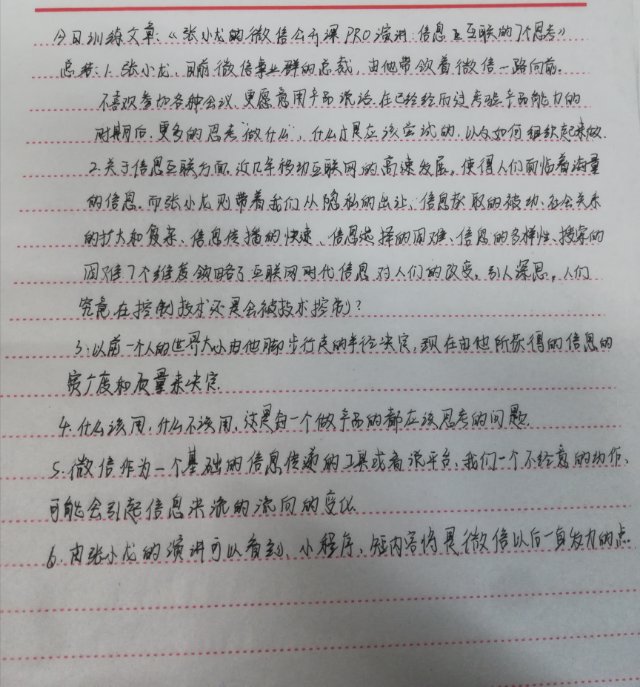 今日训练文章：《张小龙的微信公开课PRO演讲：信息互联的7个思考》
总结：1.张小龙，目前微信事业群的总裁，由他带领着微信一路向前。
不喜欢参加各种会议，更愿意用产品说话。在已经经历过考验产品能力的
时期后，更多的思考做什么，什么才是应该尝试的，以及如何组织起来做.
2.关于信息互联方面，近几年移动互联网的高速发展，使得人们面临着海量
的信息。而张小龙则带着我们从隐私的出让、信息获取的被动、社会关系
的扩大和复杂、信息传播的快速、信息选择的困难、信息的多样性、搜索的
困难7个维度领略了互联网时代信息对人们的改变。引人深思，人们
究竟在控制技术还是会被技术控制？
3.以前一个人的世界大小由他脚步行走的半径决定，现在由他所获得的信息的
广度和质量来决定.
4.什么该用，什么不该用，这是每一个做产品的都应该思考的问题.
5.微信作为一个基础的信息传递的工具或者说平台，我们一个不经意的动作，
可能会引起信息洪流的流向的变化.
6.由张小龙的演讲可以看到，小程序、短内容将是微信以后一直发力的点.